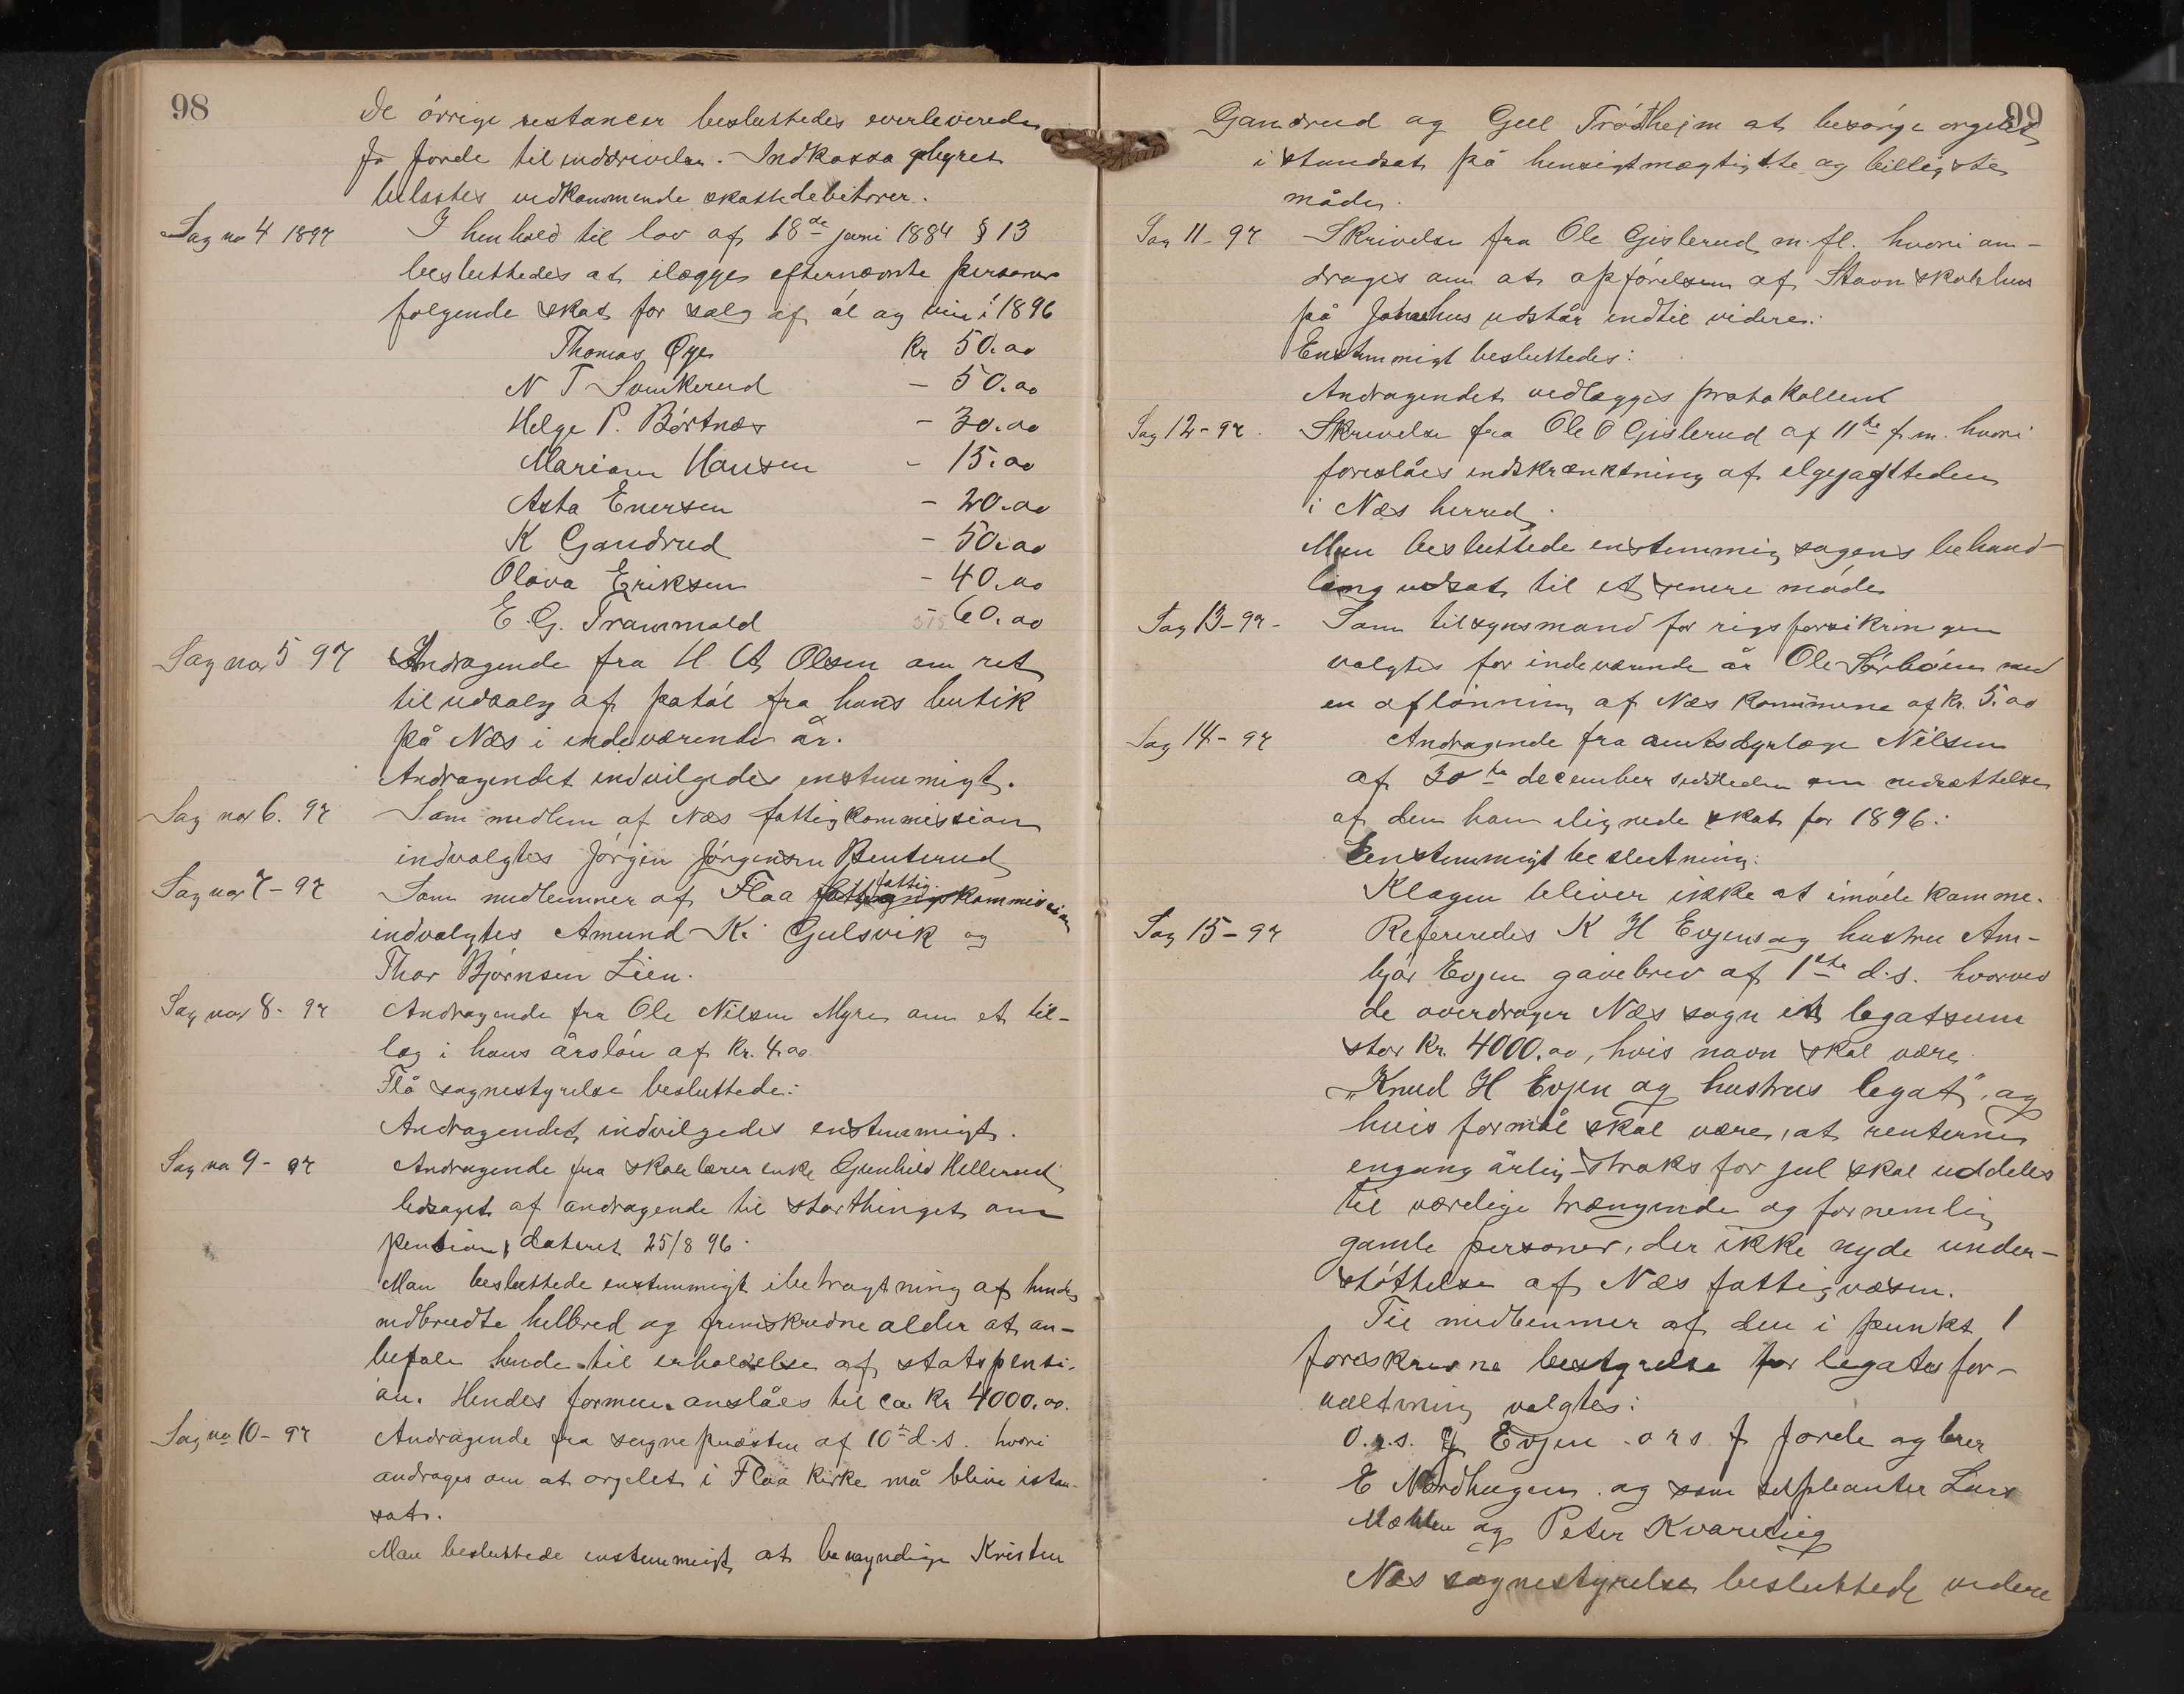 98
De övrige restancer besluttedes overleverede
J. Jorde til inddrivelse. Indkassagebyret
belastes vedkommende skattedebitorer.
Sag no 4 1897 I henhold til lov af 18de juni 1884 § 13
besluttedes at ilægge efternævnte personer
følgende skat for salg af öl og vin i 1896
Thomas Öye Kr 50.00
N T Svenkerud - 50.00
Helge P. Börtnæs - 30.00
Mariam Hansen - 15.00
Asta Enersen - 20.00
K Gandrud - 50.00
Olava Eriksen - 40.00
E. G. Trammald - 60.00
315
Sag no 5 97 Andragende fra H A Olsen om ret
til udsalg af patöl fra hans butik
på Næs i indeværende år.
Andragendet indvilgedes enstemmigt.
Sag no 6. 97 Som medlem af Næs fattigkommission
indvalgtes Jörgen Jörgensen Benterud
Sag no 7 - 97 Som medlemmer af Flaa fattig kommission
indvalgtes Amund K. Gulsvik og
Thor Björnsen Lien.
Sag no 8 - 97 Andragende fra Ole Nilsen Myre om et til-
læg i hans årslön af kr. 4.00.
Flå sognestyrelse besluttede:
Andragendet indvilgedes enstemmigt.
Sag no 9 - 97 Andragende fra skolelærer enke Gunhild Hellerud
ledsaget af andragende til storthinget om
pension, dateret 25/8 96.
Man besluttede enstemmigt i betragtning af hendes
nedbrudte helbred og fremskredne alder at an-
befale hende til erholdelse af statspensi-
on. Hendes formue anslåes til ca. kr 4000.00.
Sag no 10 - 97 Andragende fra sognepræsten af 10de d.s. hvori
andrages om at orgelet i Flaa kirke må blive istan-
sat.
Man besluttede enstemmigt at bemyndige Kristen
99
Gandrud og Gul Tröstheim at besörge orgelet
istandsat på hensigtmægtigste og billigste
måde.
Sag 11 - 97 Skrivelse fra Ole Gislerud m.fl. hvori an-
drages om at opförelsen af Stavn skolehus
på udstår indtil videre.
Enstemmigt besluttedes:
Andragendet vedlægges protokollen
Sag 12 - 97. Skrivelse fra Ole O Gislerud af 11te f.m. hvori
foreslåes indskrænktning af elgejagttiden
i Næs herred.
Man besluttede enstemmig sagens behand-
ling udsat til et senere möde
Sag 13 - 97 - Som tilsynsmand for rigsforsikringen
valgtes for indeværende år Ole Sörböen med
en aflönning af Næs kommune af kr. 5.00
Sag 14 - 97 Andragende fra amtsdyrlæge Nilsen
af 30te december sidstleden om nedsættelse
af den ham ilignede skat for 1896.
Eenstemmigt beslutning:
Klagen bliver ikke at imödekomme.
Sag 15 - 97 Refereredes K H Evjens og hustru Am-
björ Evjen gavebrev af 1ste d.s. hvorved
de overdrager Næs sogn et legatsum
stor kr. 4000.00, hvis navn skal være
„Knud H Evjen og hustrus legat", og
hvis formål skal være, at renterne
engang årlig straks for jul skal uddeles
til værdige trængende og fornemlig
gamle personer, der ikke nyde under-
stöttelse af Næs fattigvæsen.
Til medlemmer af den i punkt 1
foreskrevne bestyrelse for legatets for-
valtning valgtes:
O.r.s. Evjen. o r s J Jorde og lærer
E Nordhagen. og som suppleanter Lars
Mæhlen og Peter Kvarvlig
Næs sognestyrelse besluttede videre